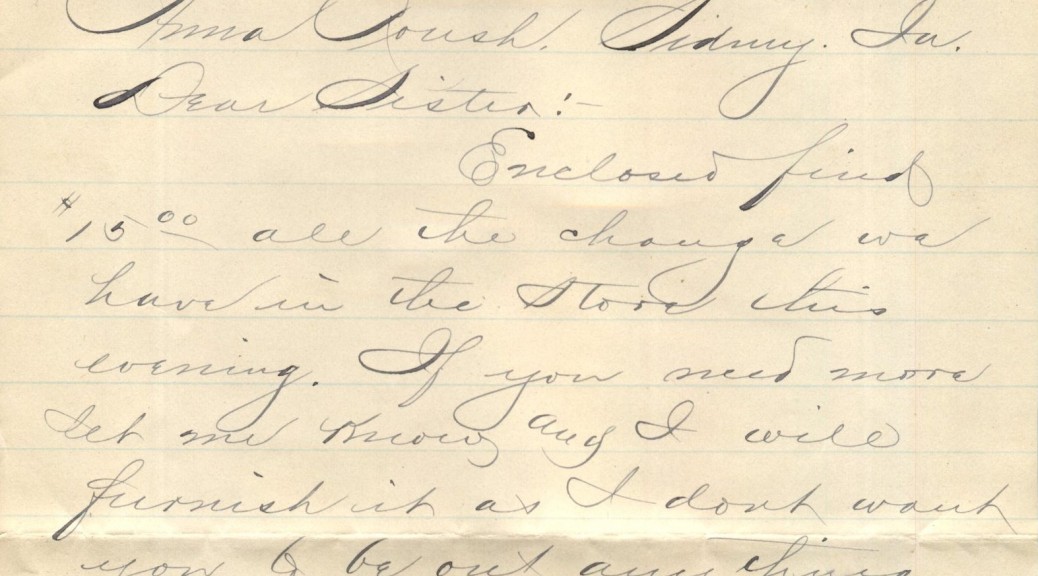 Anna Roush. Sidney. Ia.
Dear Sister:-
Enclosed find
$15.00 all the change we
have in the store this
evening. If you need more
let me know and I will
furnish it as I dont want
you to be out any thing